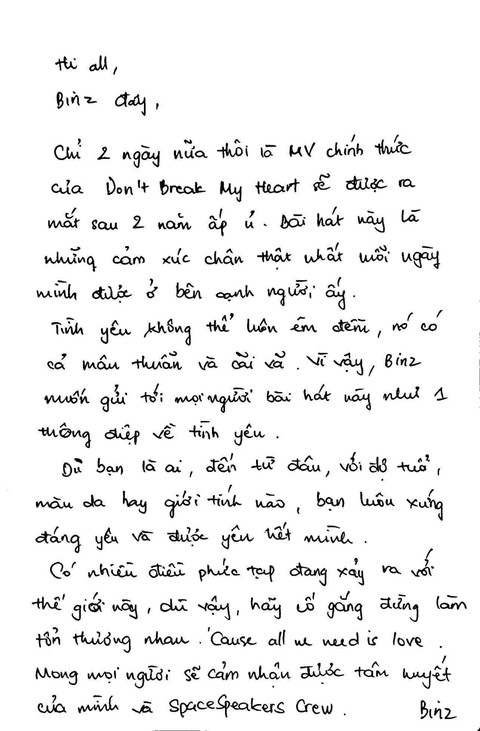 Hi all,
Binz đây,
Chỉ 2 ngày nữa thôi là MV chính thức
của Don't Break My Heart sẽ được ra
mắt sau 2 năm ấp ủ. Bài hát này là
những cảm xúc chân thật nhất mỗi ngày
mình được ở bên cạnh người ấy.
Tình yêu không thể luôn êm đềm, nó có
cả mâu thuẫn và cãi vã. Vì vậy, Binz
muốn gửi tới mọi người bài hát này như 1
thông điệp về tình yêu.
Dù bạn là ai, đến từ đâu, với độ tuổi,
màu da hay giới tính nào, bạn luôn xứng
đáng yêu và được yên hết mình.
Có nhiều điều phức tạp đang xảy ra với
thế giới này, dù vậy, hãy cố gắng đừng làm
tổn thương nhau. 'Cause all we need is love.
Mong mọi người sẽ cảm nhận được tâm huyết
của mình và SpaceSpeakers Crew. Binz